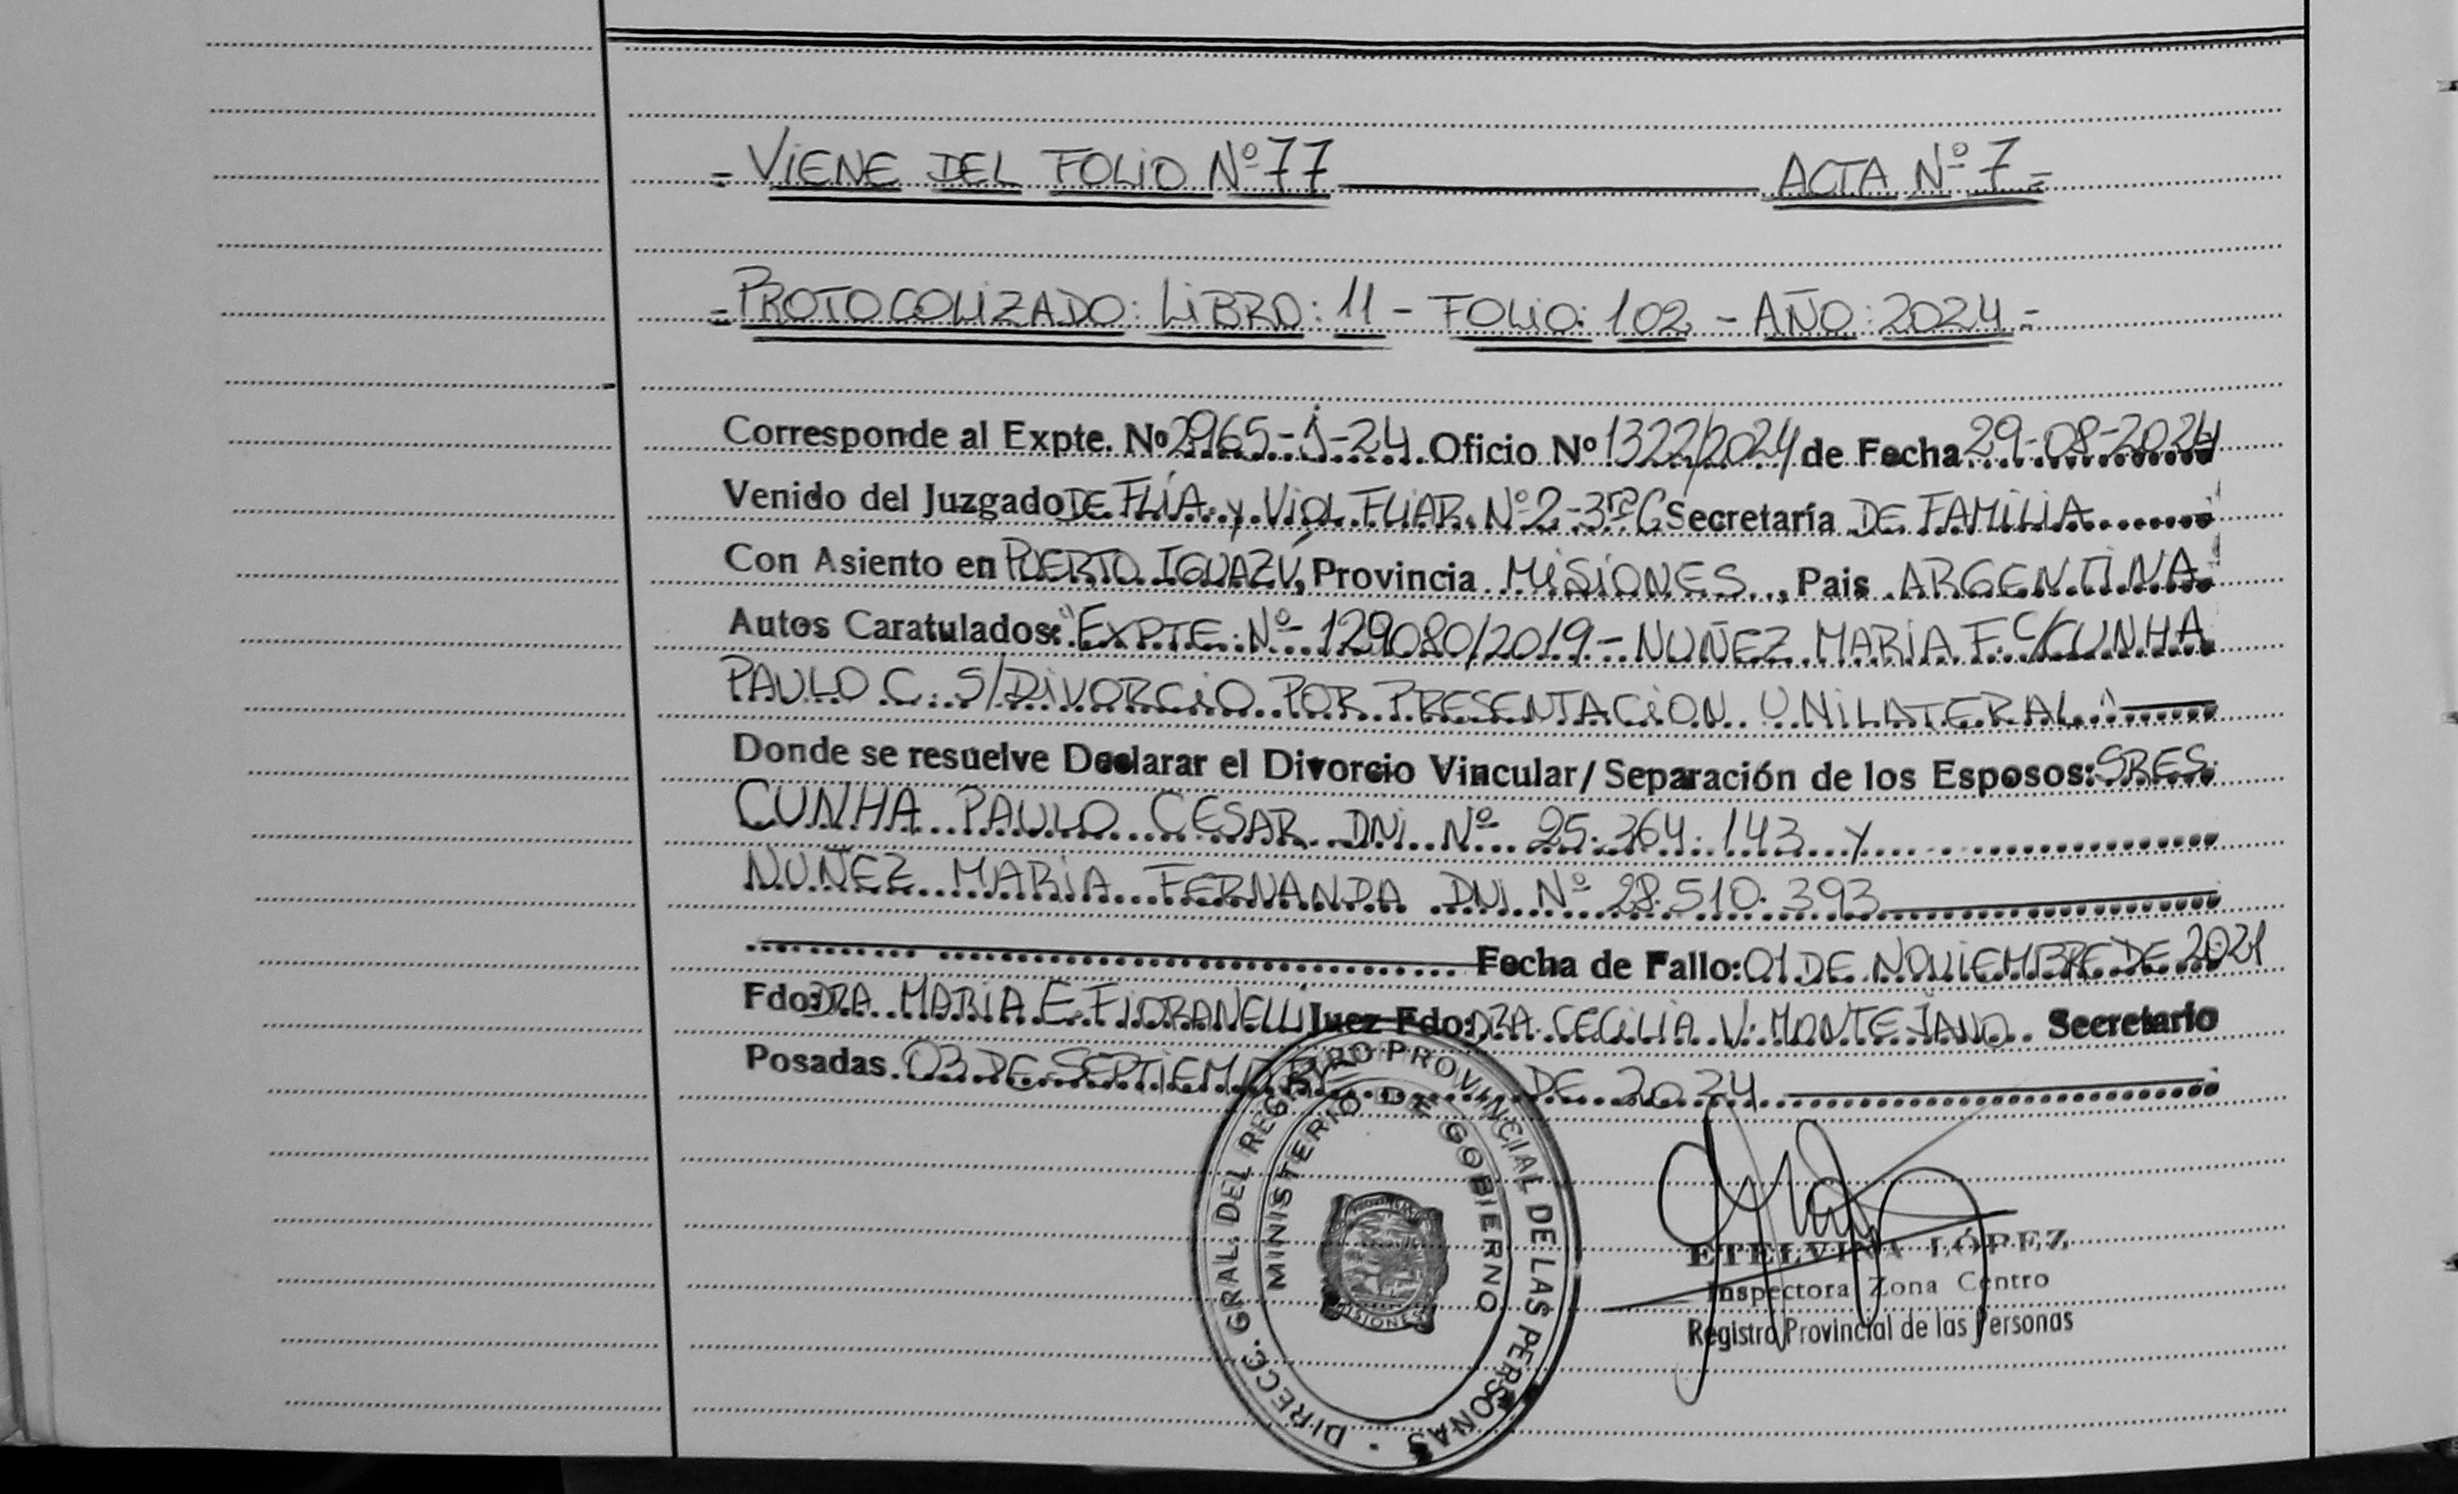 = VIENE DEL FOLIO Nº 77 ACTA Nº 7 =
= PROTOCOLIZADO: LIBRO: 11 - FOLIO: 102 - AÑO: 2024 =
Corresponde al Expte. Nº 2965-J-24 Oficio Nº 1322/2024 de Fecha 29-08-2024
Venido del Juzgado DE FLÍA. y VIOL. FLIAR. Nº 2 - 3ra C Secretaría DE FAMILIA
Con Asiento en PUERTO IGUAZÚ, Provincia MISIONES, Pais ARGENTINA
Autos Caratulados: "EXPTE. Nº 129080/2019 - NUÑEZ MARIA F. C/ CUNHA
PAULO C. S/ DIVORCIO POR PRESENTACION UNILATERAL"
Donde se resuelve Declarar el Divorcio Vincular/Separación de los Esposos: SRES.
CUNHA PAULO CESAR DNI Nº 25.364.143 y
NUÑEZ MARIA FERNANDA DNI Nº 28.510.393
Fecha de Fallo: 01 DE NOVIEMBRE DE 2021
Fdo: DRA. MARIA E. FIORANELLI Juez Fdo: DRA. CECILIA V. MONTEJANO Secretario
Posadas 03 DE SEPTIEMBRE DE 2024
DIRECC. GRAL. DEL REGISTRO PROVINCIAL DE LAS PERSONAS
MINISTERIO DE GOBIERNO
MISIONES
ETELVINA LÓPEZ
Inspectora Zona Centro
Registro Provincial de las Personas